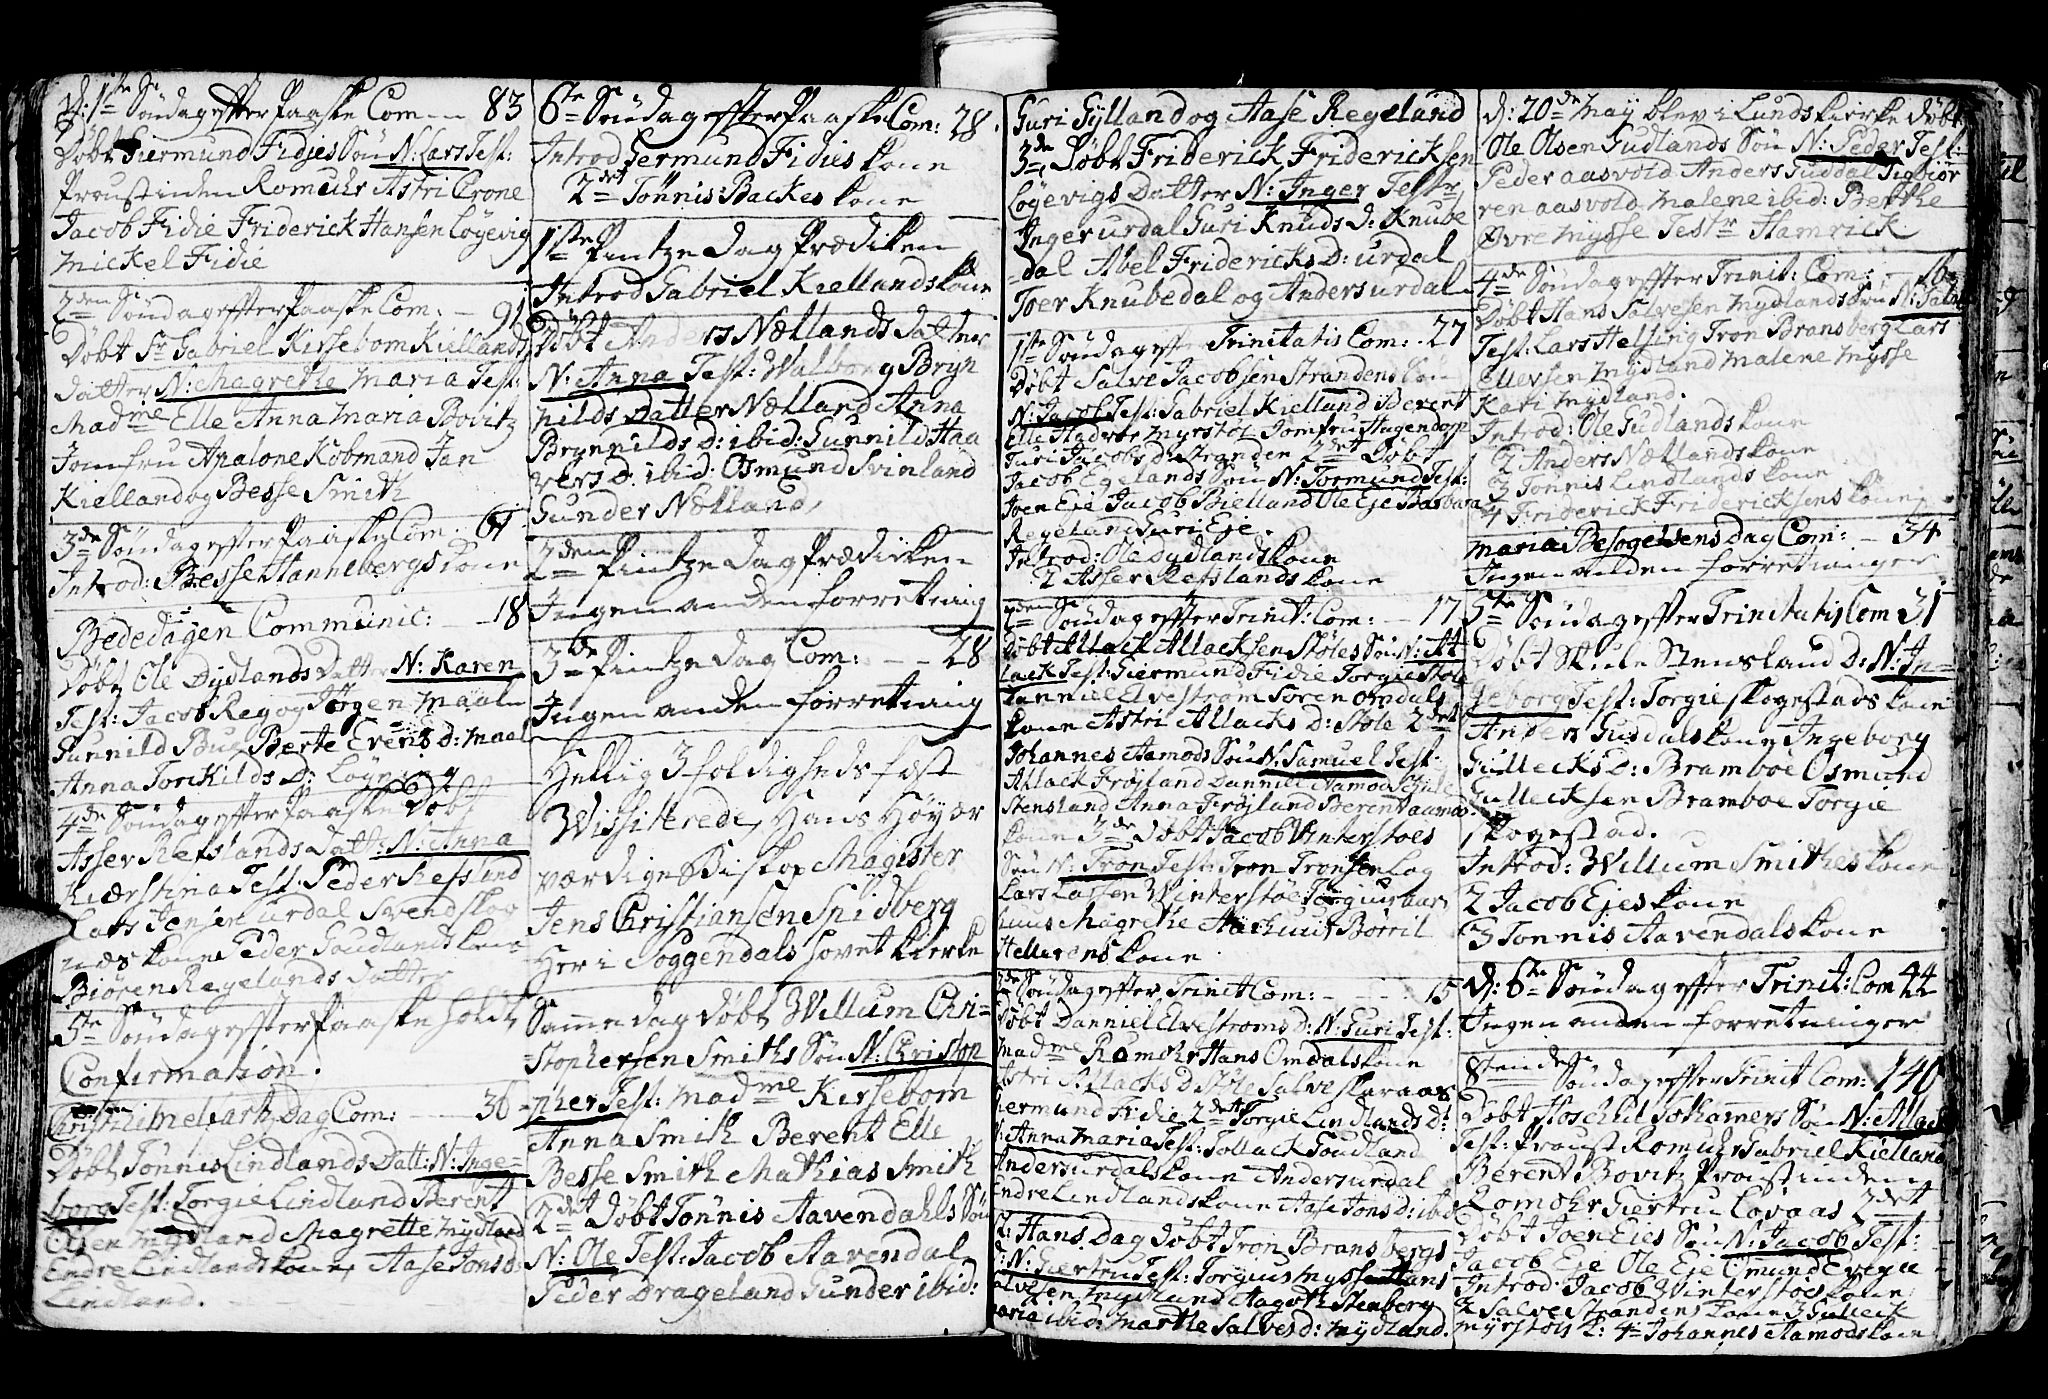 D: 1ste Søndag efter Paaske Com — 83
Døbt Giermund Fidjes Søn N: Lars Test:
Proustinden Romuhr Astri Crone
Jacob Fidie Friderick Hansen Løyevig
Mickel Fidie
2den Søndag efter Paaske Com: — 91
Døbt Sr Gabriel Kirsebom Kiellands
Datter N: Magrethe Maria Test:
Madme Elle Anna Maria Bovitz
Jomfru Apalone Kobmand Jan
Kielland og Besse Smith
3de Søndag efter Paaske Com
Introd: Besse Hannebergs Kone
Bededagen Communic: — 18
Døbt Ole Dydlands Datter N: Karen
Test: Jacob Reg og Jørgen Maal
Gunnild Bug Berte Evens D: Maal
Anna Torckilds D: Løy
4de Søndag efter Paaske Døbt
Asser Refslands Datt: N: Anna
Kierstina Test: Peder Refsland
Lars Jensen Urdal Svend Skog
Kone Peder Goudland Kone
Biøren Regelands Datter
5te Søndag efter Paaske holdt
Confirmation.
Christi Himelfartz Dag Com: — 36
Døbt Tønnis Lindlands Datt: N: Inge-
borg Test: Torgie Lindland Berent
Olsen Mydland Magrette Mydland
Endre Lindlands Kone, Aase Jons D:
Lindland.
6te Søndag efter Paaske Com: 28
Introd Germund Fidies Kone
2det Tønnis Backes Kone
1ste Pintze Dag Prædiken
Introd Gabriel Kiellands Kone
Døbt Anders Nællands Datter
N: Anna Test: Walborg Bryn
nilds Datter Nælland Anna
Brynnilds D: ibid: Gunnild Haa
vers D. ibid: Osmund Svinland
Gunder Nælland,
2den Pintze Dag Prædicken
Ingen anden Forretning
3de Pintze Dag Com: — 28
Ingen anden Forretning
Hellig 3foldigheds Fest
Wissiterede, Hans Høyær
værdige Biskop Magister
Jens Christiansen Spidberg
Her i Soggendals Hovet Kierke
Samme dag Døbt Willum Chri-
stophersen Smiths Søn N: Christop
pher Test: Madme Kirsebom
Anna Smith Berent Elle
Besse Smith Mathias Smith
2det Døbt Tønnis Aavendahls Søn
N: Ole Test: Jacob Aavendal
Peder Drageland Gunder ibid:
Guri Gylland og Aase Regeland
3de Døbt Friderick Fridericksen
Løyevigs Datter N: Inger Testr
Inger Urdal Guri Knuds D: Knube
dal Abel Fridericks D: Urdal
Toer Knubedal og Anders Urdal
1ste Søndag efter Trinitatis Com: 27
Døbt Salve Jacobsen Strandens Søn
N: Jacob Test: Gabriel Kielland Berent
Elle Myrstøl Jomfru Hugendorp
Guri Jacobs D: Stranden 2det Døbt
Jacob Egelands Søn N: Tormund Test:
Joen Eie Jacob Bielland Ole Eje Barbara
Regeland Guri Eje.
Introd: Ole Dydlands Kone
2 Asser Refslands Kone
2den Søndag efter Trinit: Com: — 17
Døbt Atlack Atlacksen Støles Søn N: At-
lack Test: Giermund Fidie Torgie Støle
Danniel Elvestrøm Søren Omdals
Kone Astri Atlacks D: Støle 2det
Johannes Aamods Søn N: Samuel Test:
Atlack Frøjland Danniel Aamod Schule
Stensland Anna Frøjland Berent Aamods
Kone 3de Døbt Jacob Vinterstøes
Søn N: Tron Test: Tron Tronsen Log
Lars Larsen Winterstøe Torgiuus Aar
huus Magrethe Aarhuus Børril
Hellerens Kone
3de Søndag efter Trinit Com: — 15
Døbt Danniel Elvestroms D: N: Guri Test:
Madme Romohr Hans Omdals Kone
Astri Atlacks D Støle Salve Skaraas
Giermund Fidie 2det Torgie Lindlands D:
N: Anna Maria Test: Tollack Goudland
Anders Urdals Kone Anders Urdal
Endre Lindlands Kone Aase Jons D: ibid
St: Hans Dag Døbt Tron Bransbergs
D: N: Giertru Test: Torgius Mysse Hans
Salvesen Mydland Aagoth Stenberg
Maria ibid: Marthe Salves D: Mydland.
D: 20de May blev i Lunds Kirke Døbt
Ole Olsen Gudlands Søn N: Peder Test:
Peder Aasvold Anders Guddal Sigbiør
ren Aasvold Malene ibid: Berthe
Øvre Mysse Testr Hamrick
4de Søndag efter Trinit: Com:
Døbt Hans Salvesen Mydlands Søn N: Salve
Test: Lars Helsing Tron Bransberg Lars
Ellevsen Mydland Malene Mysse
Kari Mydland.
Introd: Ole Gudlands Kone
2 Anders Nællands Kone
3 Tønnis Lindlands Kone
4 Friderick Fridericksens Kone
Maria Besøgelsens Dag Com: — 34
Ingen anden forretninger
5te Søndag efter Trinitatis Com 31
Døbt Skule Stensland D: N: In-
geborg Test: Torgie Skogestads Kone
Anders Gusdals Kone Ingeborg
Gullecks D: Bramboe Osmund
Gullecksen Bramboe Torgie
Skogestad.
Introd: Willum Smithes Kone
2 Jacob Ejes Kone
3 Tønnis Aavendals Kone
D: 6te Søndag efter Trinit: Com 44
Ingen anden forretninger
8tende Søndag efter Trinit Com: 140
Døbt Hoschil Tothamers Søn N: Atlack
Test: Proust Romuhr Gabriel Kielland
Berent Bovitz Proustinden
Romohr Giertru Løvaas 2det
Døbt Joen Eies Søn N: Jacob Test:
Jacob Eje Ole Eje Omund Evene
Introd: Jacob Winterstøes Kone
2 Salve Strandens Kone 3 Gulleick
Myrstøls K: 4 Johannes Aamods Kone